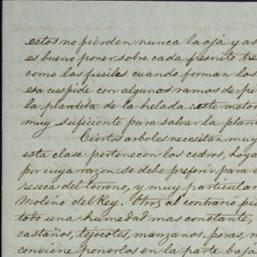 estos no pierden nunca la oja, y as
es bueno poner sobre cada fresnito tre
como los fusiles cuando forman los
esa cuspide con algunos ramos de pi
la plantita de la helada: este metod
muy suficiente para salvar la plan
Ciertos arboles necesitan muy
esta clase pertenecen los cedros, hoya
por cuya razon se debe preferir para e
reseca del terreno, y muy particular
Molino del Rey. Otros al contrario pi
todo una humedad mas constante,
castaños, tejocotes, manzanos, peras, n
conviene ponerlos en la parte baja